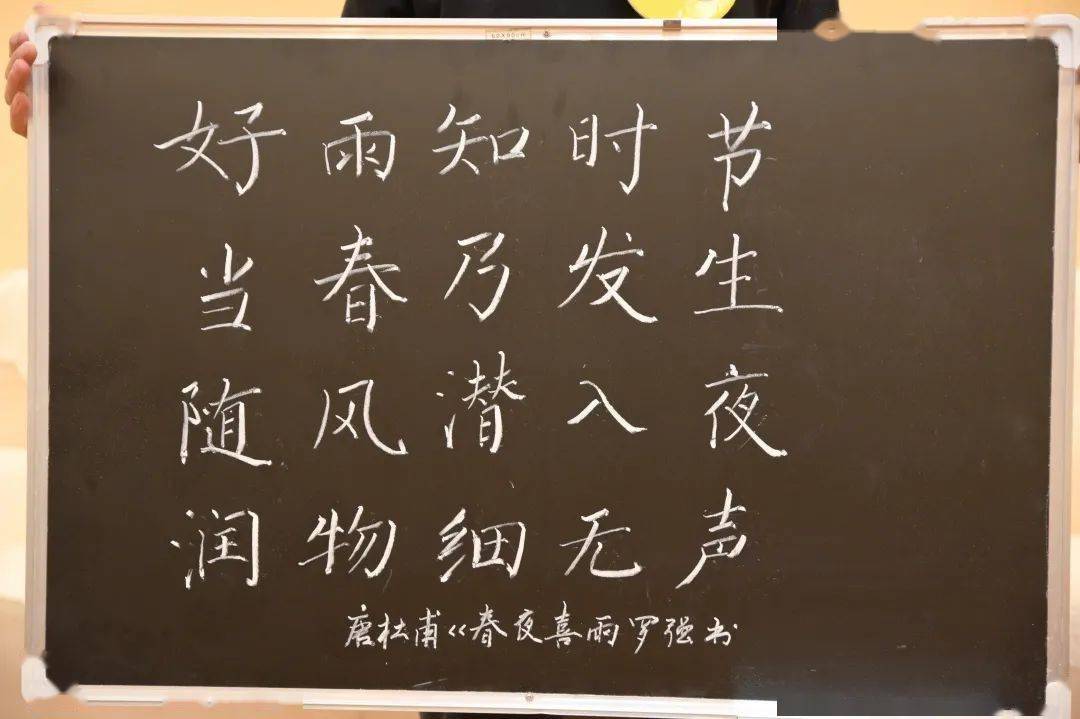 好雨知时节
当春乃发生
随风潜入夜
润物细无声
唐杜甫《春夜喜雨罗强书